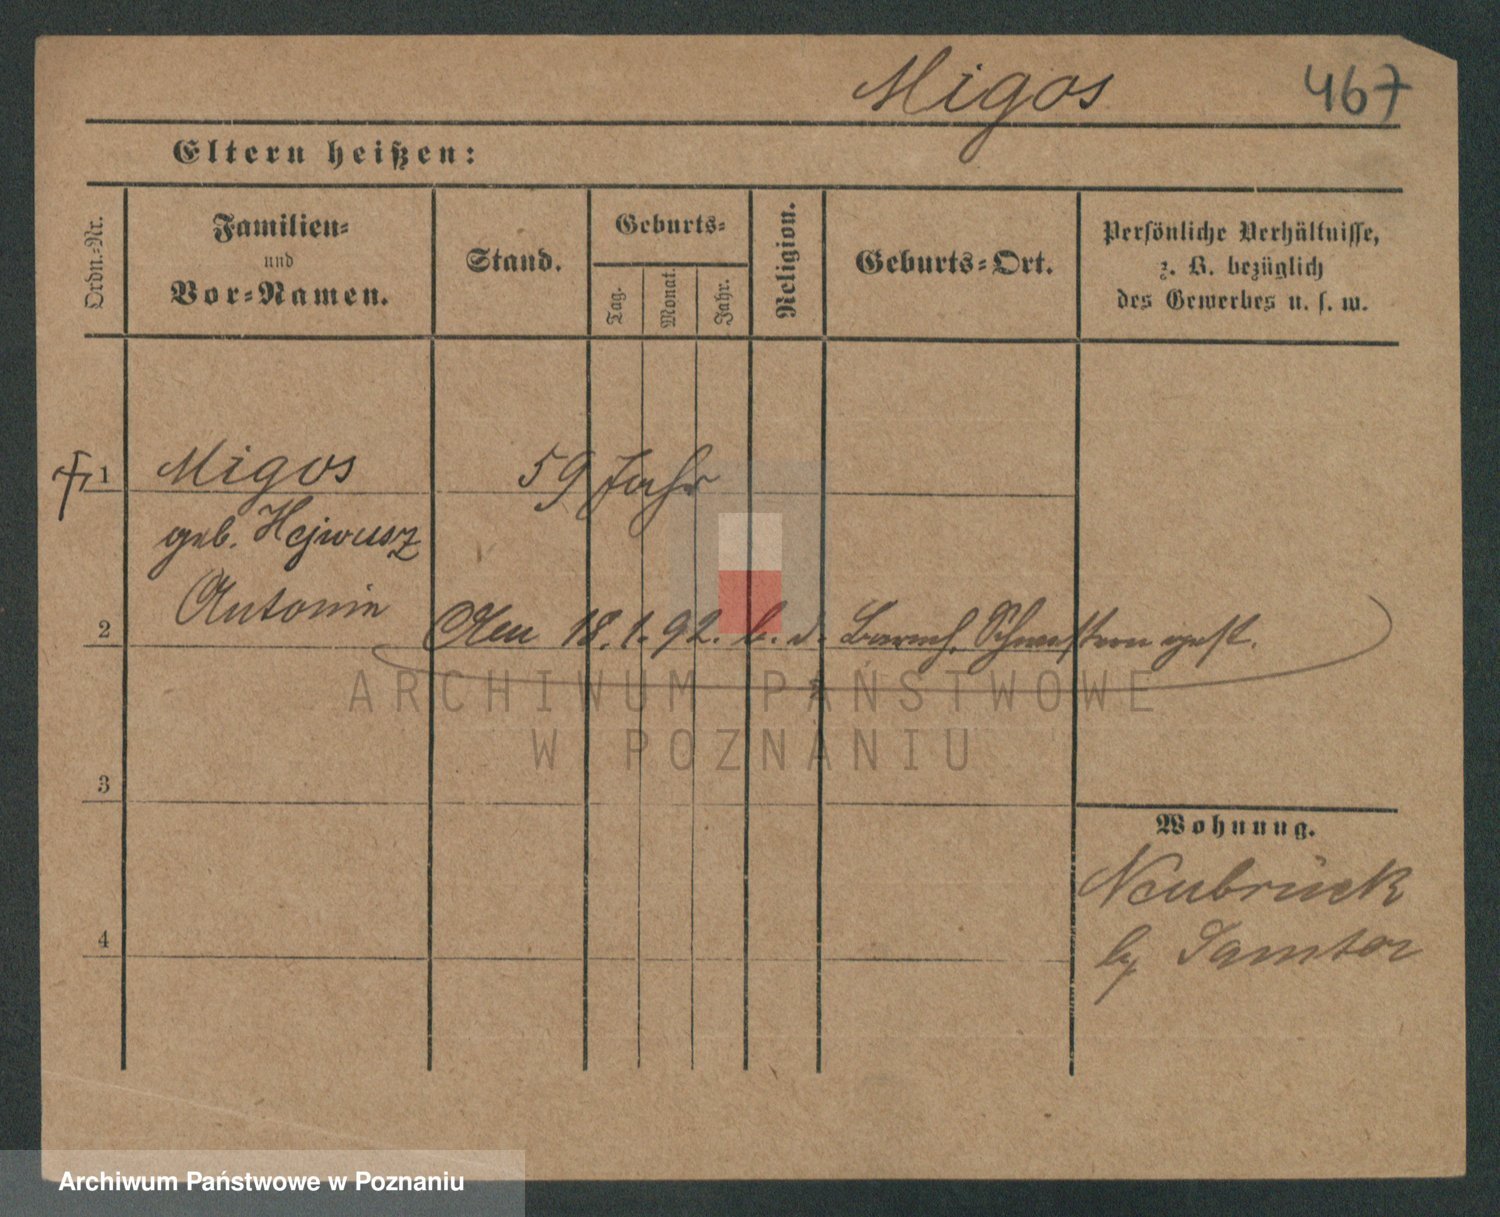 Migos 467
Eltern heißen:
Ordn.-Nr.
Familien-
und
Vor-Namen.
Stand.
Geburts-
Tag.
Monat.
Jahr.
Religion.
Geburts-Ort.
Persönliche Verhältnisse,
z. B. bezüglich
des Gewerbes u. s. w.
1 Migos 59 Jahr
geb. Hejwusz
Antonin
2 Am 18.1.92. b. d. Barmh. Schwestern gest.
ARCHIWUM PAŃSTWOWE
W POZNANIU
3
Wohnung.
Neubrück
4 by Samter
Archiwum Państwowe w Poznaniu